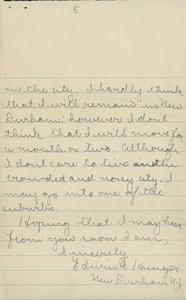 5
in the city. I hardly think
that I will remain in New
Durham; however I don't
think that I will move for
a month or two. Although
I don't care to live in the
crowded and noisy city, I
may go into one of the
suburbs.
Hoping that I may hear
from you soon I am,
Sincerely
Edwin A.
New Durham NJ